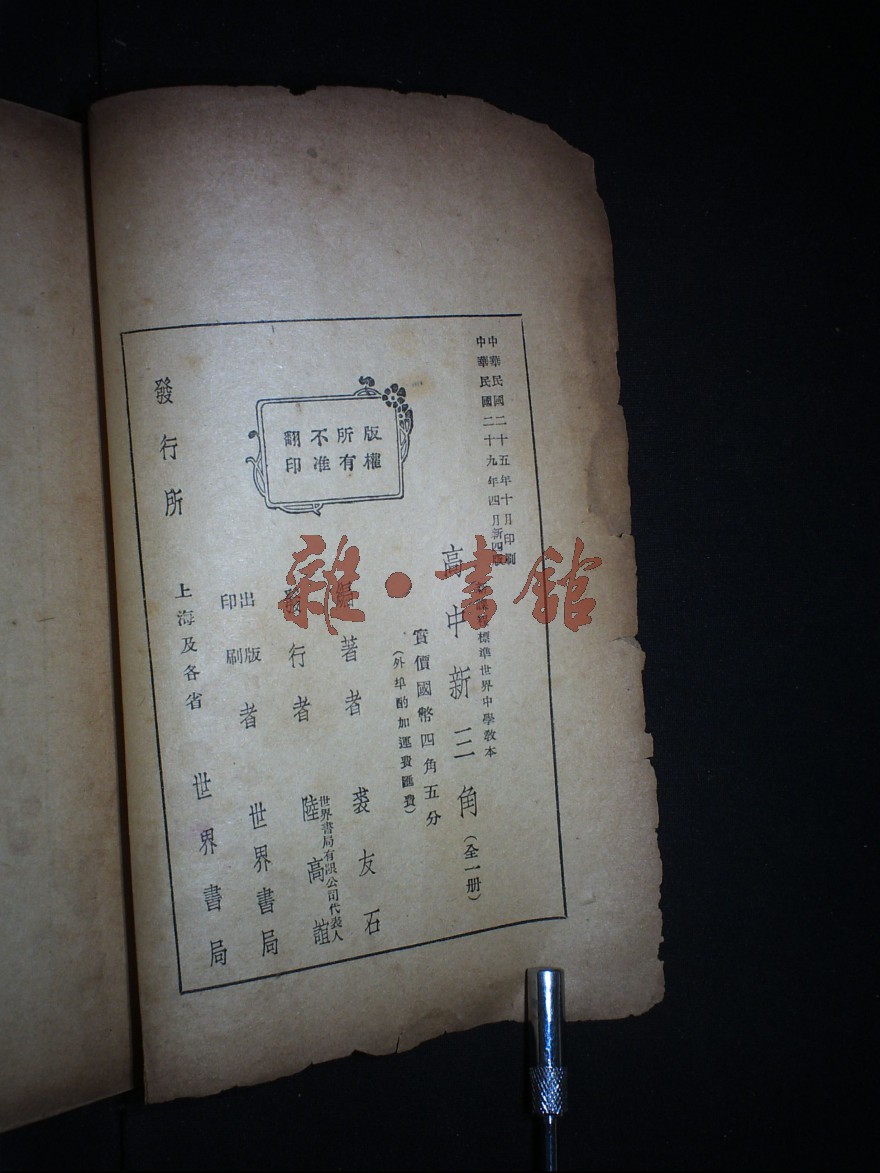 中華民國二十五年十月印刷
中華民國二十九年四月新四版
課程標準世界中學教本
高中新三角(全一册)
實價國幣四角五分
(外埠酌加運費匯費)
版權所有
不准翻印
編著者 裘友石
發行者 世界書局有限公司代表人 陸高誼
出版印刷者 世界書局
發行所 上海及各省 世界書局
雜·書館